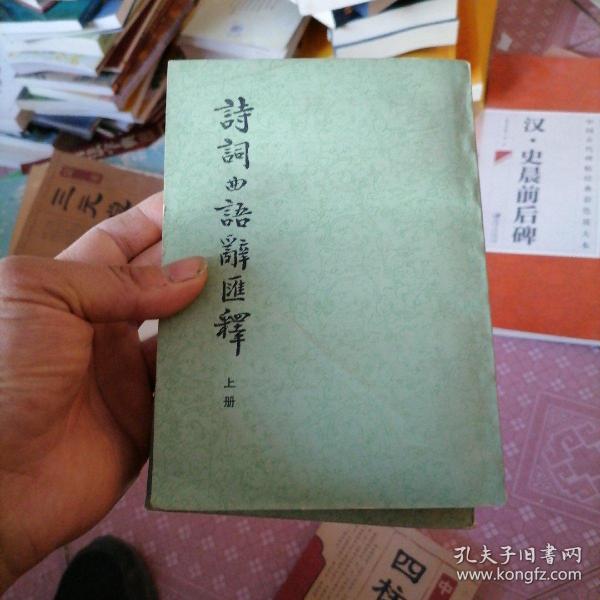 詩詞曲語辭匯釋
上册
汉·史晨前后碑
三元
四柱
中
孔夫子旧书网
www.kongfz.com